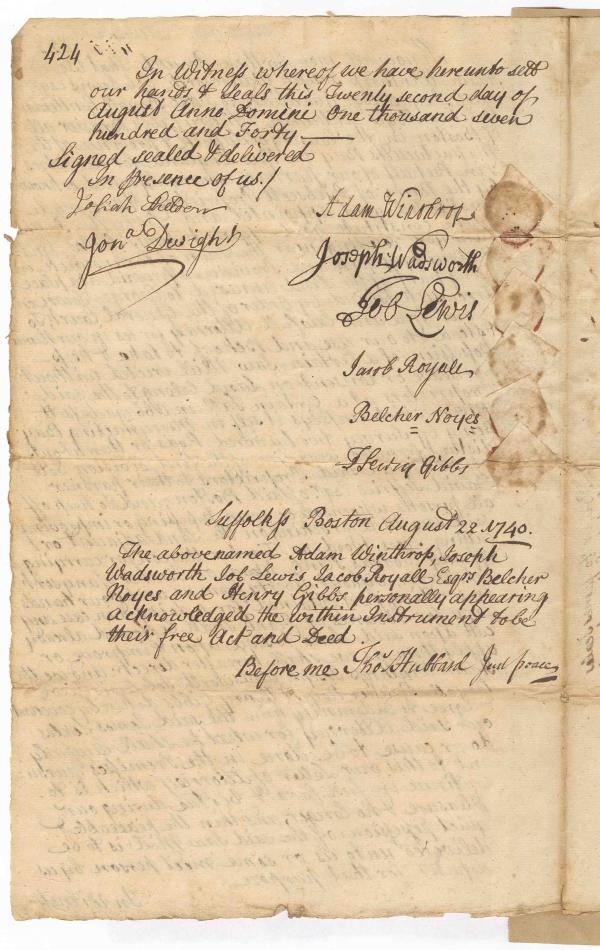 424
In Witness whereof we have hereunto sett
our hands & Seals this Twenty second day of
August Anno Domini One thousand seven
hundred and Forty
Signed sealed & delivered
In presence of us /
Josiah Sheldon
Jonª Dwight
Adam Winthrop
Joseph Wadsworth
Job Lewis
Jacob Royall
Belcher Noyes
Henry Gibbs
Suffolk ss Boston August 22 1740.
The abovenamed Adam Winthrop, Joseph
Wadsworth Job Lewis Jacob Royall Esqrs Belcher
Noyes and Henry Gibbs personally appearing
acknowledged the within Instrument to be
their free Act and Deed.
Before me Thos Hubbard Just peace